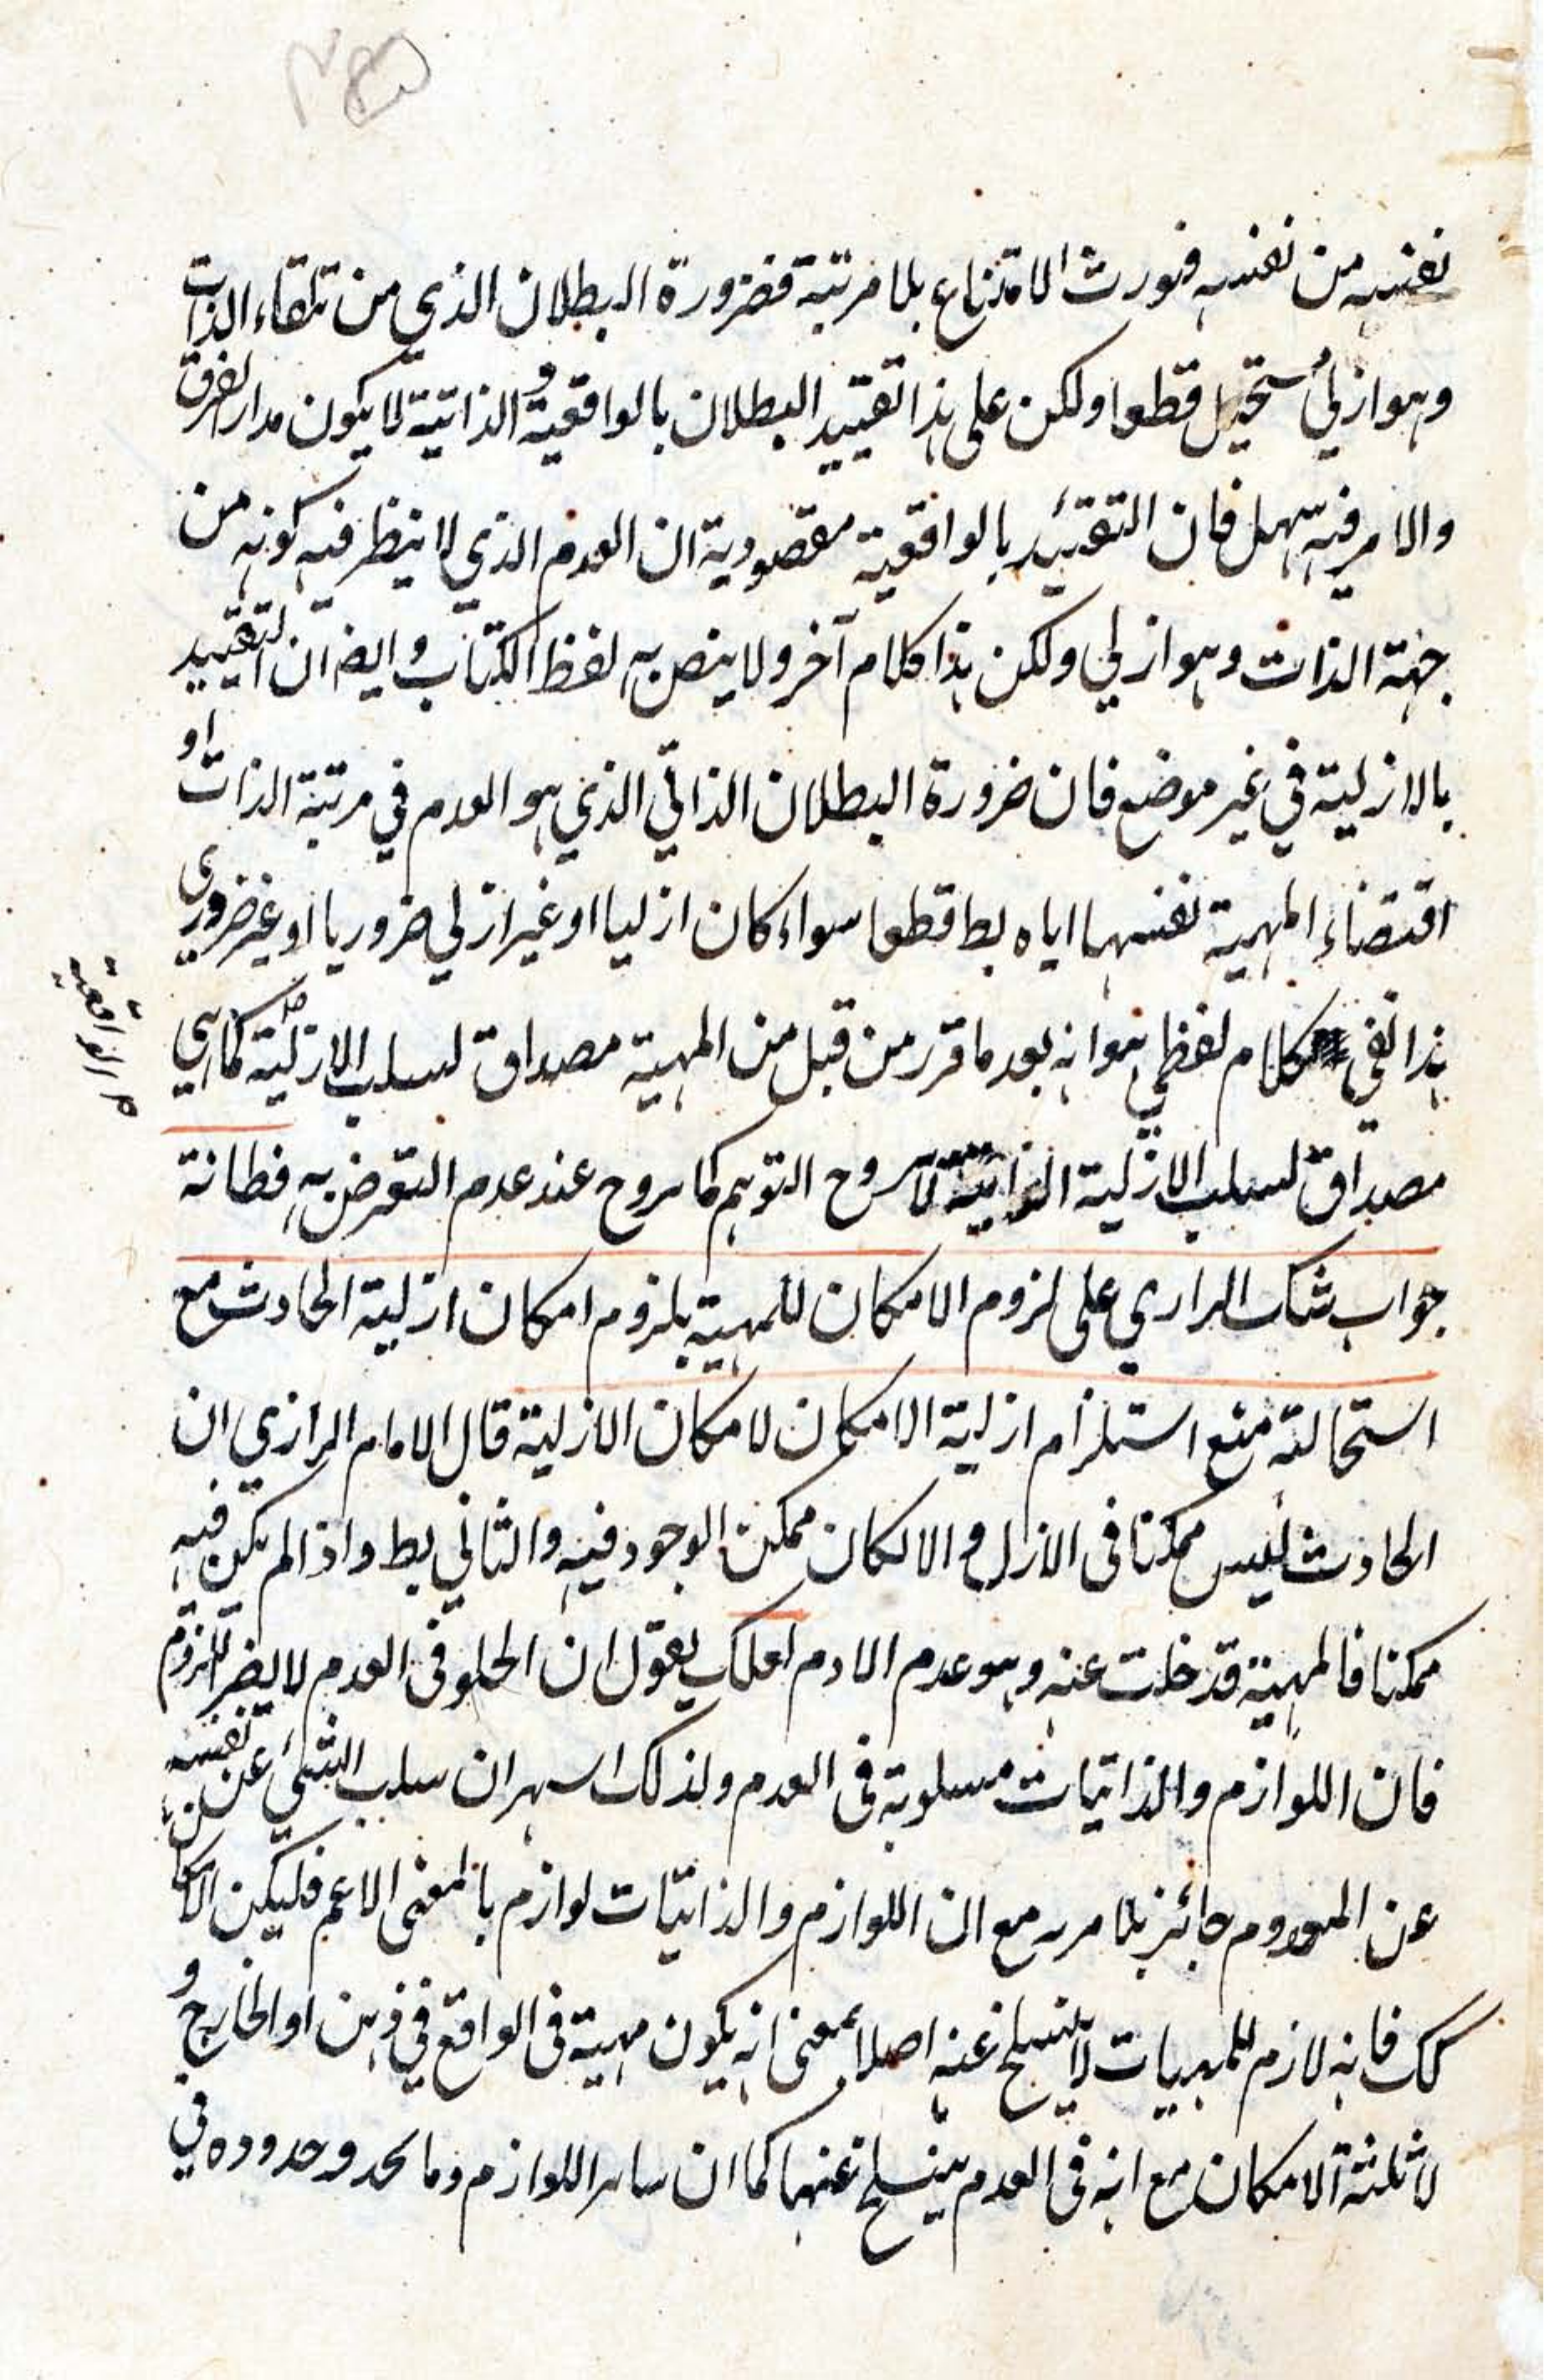 نفسه من نفسه فيورث الامتناع بلا مرتبة فضرورة البطلان الذي من تلقاء الذات
وهو ازلي مستحيل قطعا ولكن على هذا تقييد البطلان بالواقعية و الذاتية لا يكون مدار الفرق
والامر فيه سهل فان التقييد بالواقعية مقصوديه ان العدم الذي لا ينظر فيه كونه من
جهة الذات وهو ازلي ولكن هذا كلام آخر ولا ينص به لفظ الكتاب وايضا ان التقييد
بالازلية في غير موضع فان ضرورة البطلان الذاتي الذي هو العدم في مرتبة الذات او
اقتضاء المهية نفسها اياه بط قطعا سواء كان ازليا او غير ازلي ضروريا او غير ضروري
هذا لفي كلام لفظي هو انه بعد ما قرر من قبل من المهية مصداق لسلب الازلية كما هي
م الواقعية
مصداق لسلب الازلية الذاتية لا يروح التوهم كما يروح عند عدم التعرض به فطانة
جواب شك الرازي على لزوم الامكان للمهية بلزوم امكان ازلية الحادث مع
استحالته منع استلزام ازلية الامكان لامكان الازلية قال الامام الرازي ان
الحادث ليس ممكنا فى الازل و الا لكان ممكن الوجود فيه والثاني بط واذا لم يكن فيه
ممكنا فالمهية قد خلت عنه وهو عدم اللادم لعلك يقول ان الخلو فى العدم لا يضر اللزوم
فان اللوازم والذاتيات مسلوبة فى العدم ولذلك اسهر ان سلب الشئ عن نفسه
عن المعدوم جائز بلا مريه مع ان اللوازم والذاتيات لوازم بالمعنى الاعم فليكن الامكان
كك فانه لازم للمهيات لا ينسلخ عنه اصلا بمعنى انه يكون مهية فى الواقع في ذهن او الخارج و
لا ثلثة الامكان مع انه فى العدم ينسلخ عنها كما ان ساير اللوازم وما يحد وحدوده في